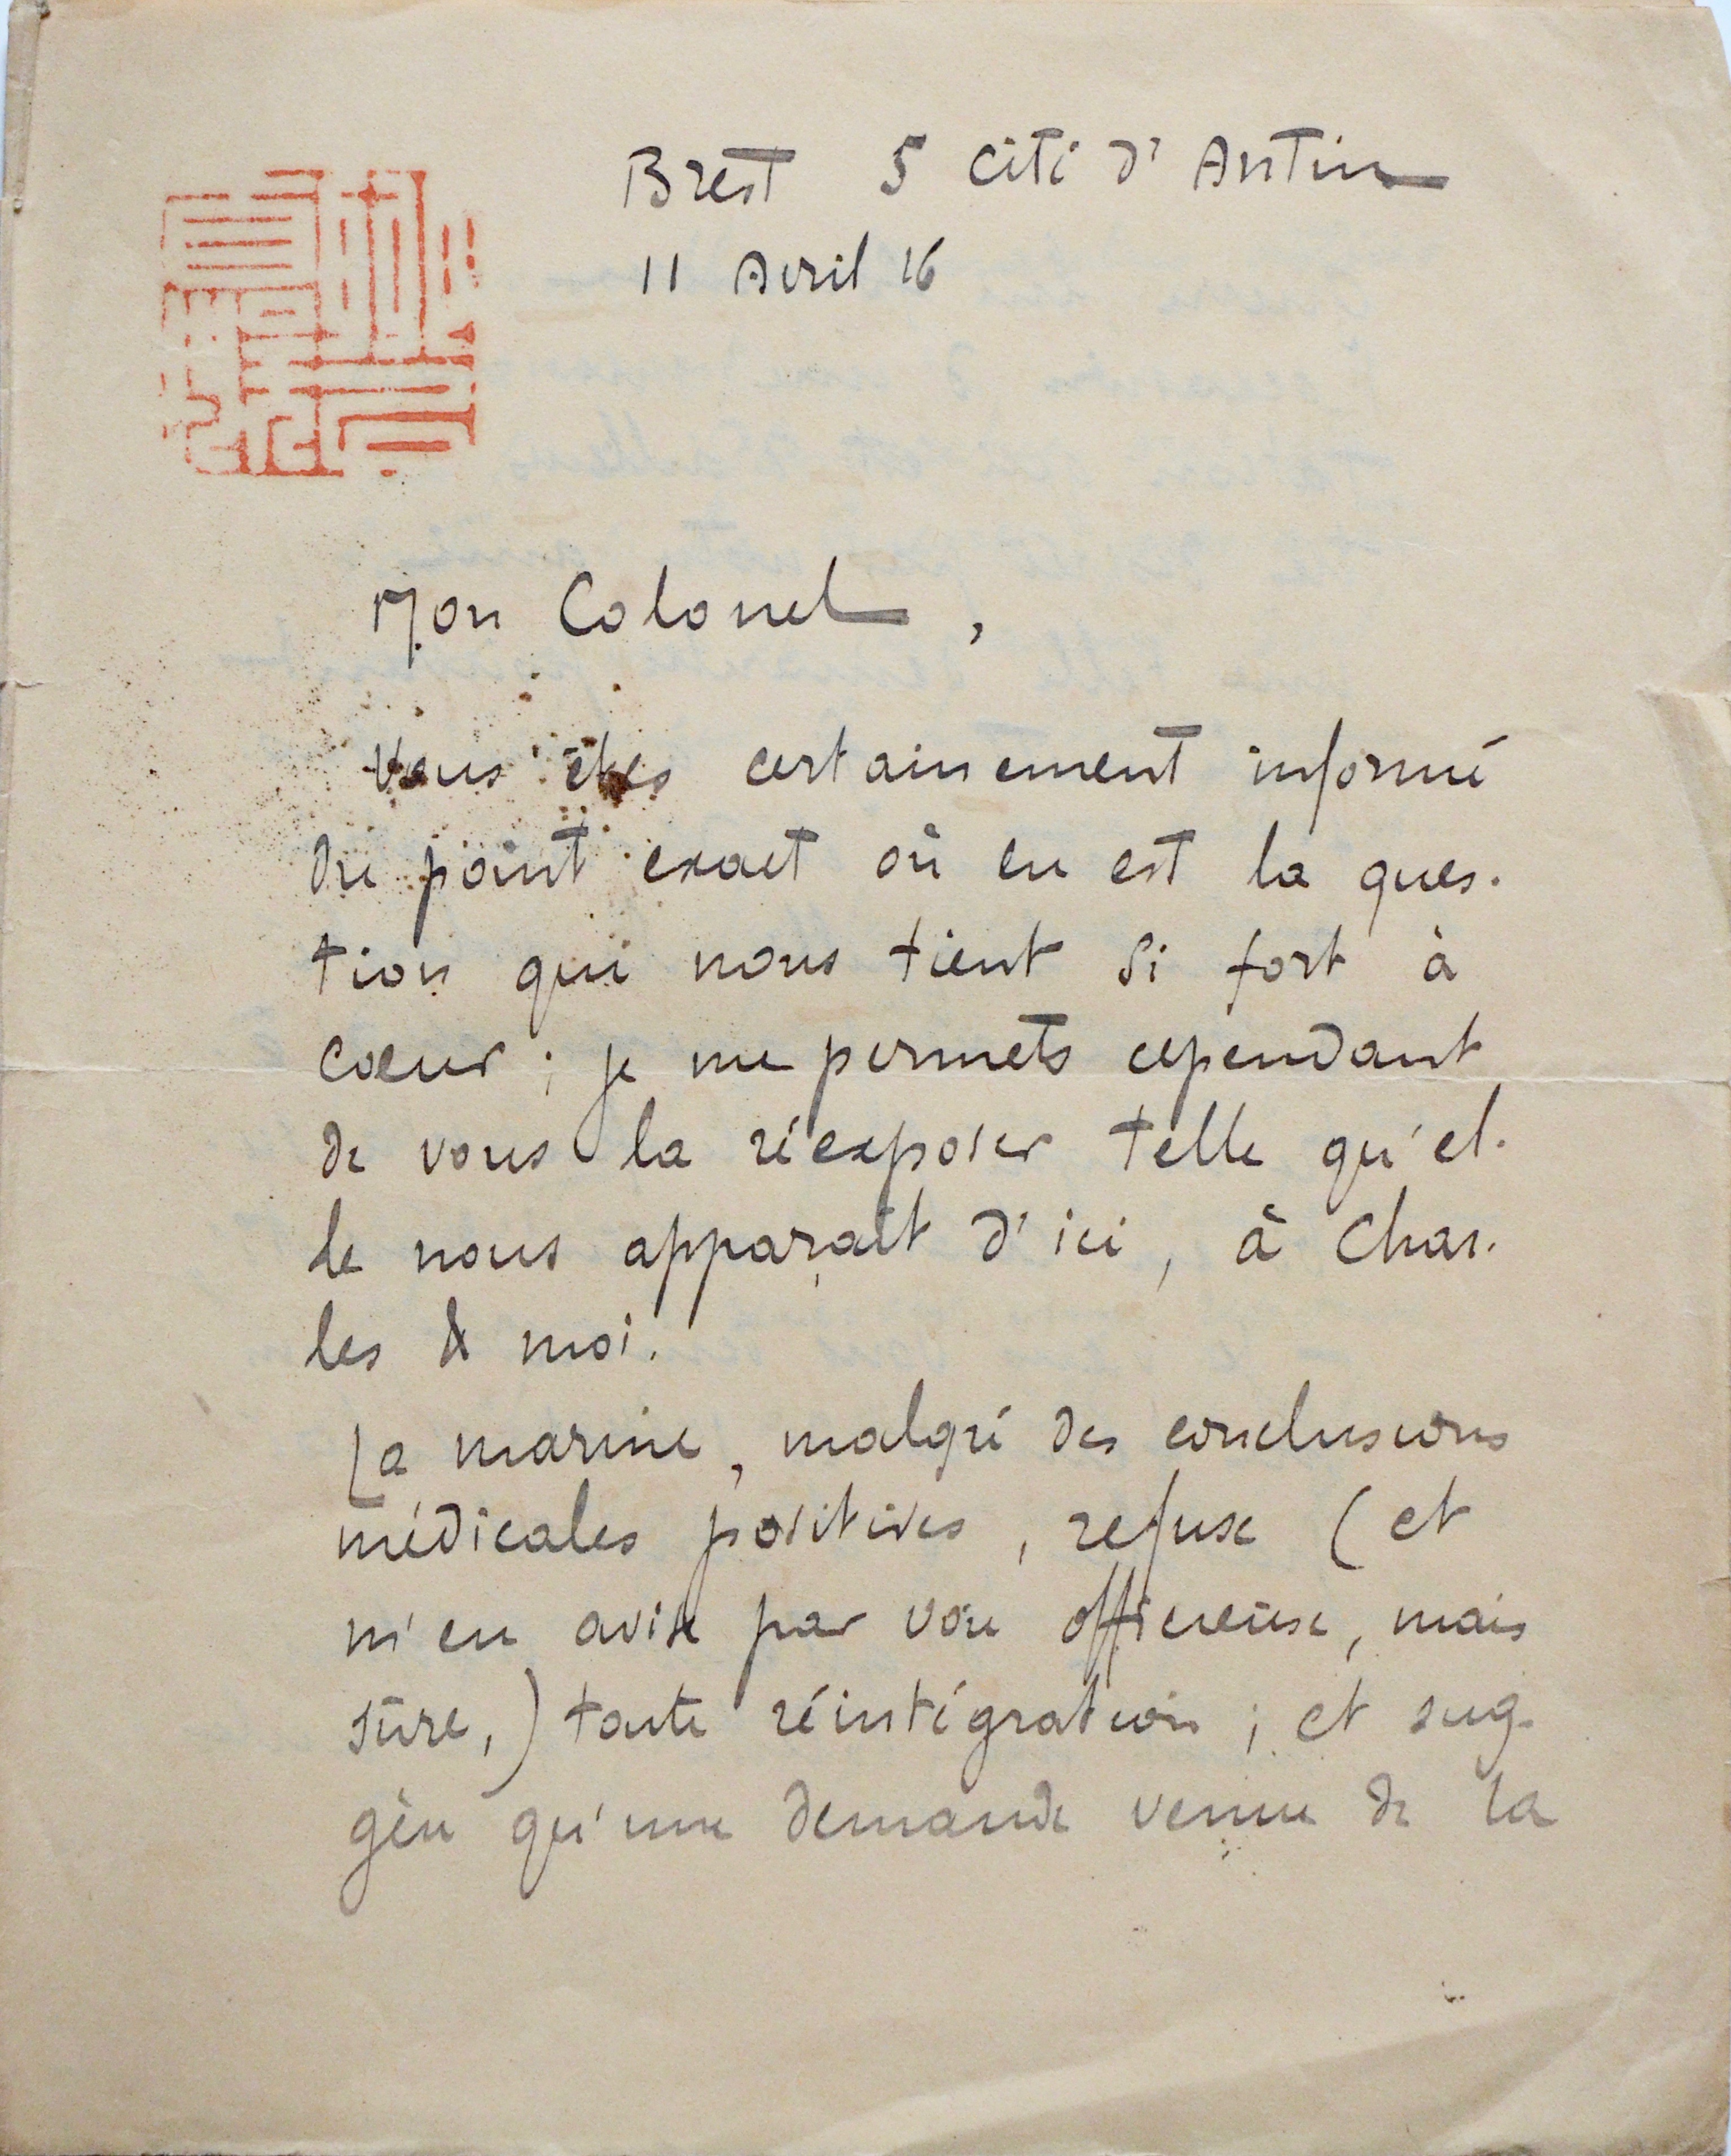 Brest 5 cité d'Antin
11 Avril 16
Mon Colonel,
Vous êtes certainement informé
du point exact où en est la ques-
tion qui nous tient si fort à
cœur ; je me permets cependant
de vous la réexposer telle qu'el-
le nous apparaît d'ici, à Char-
les & moi.
La marine, malgré des conclusions
médicales positives, refuse (et
m'en avise par voie officieuse, mais
sûre,) toute réintégration ; et sug-
gère qu'une demande venue de la